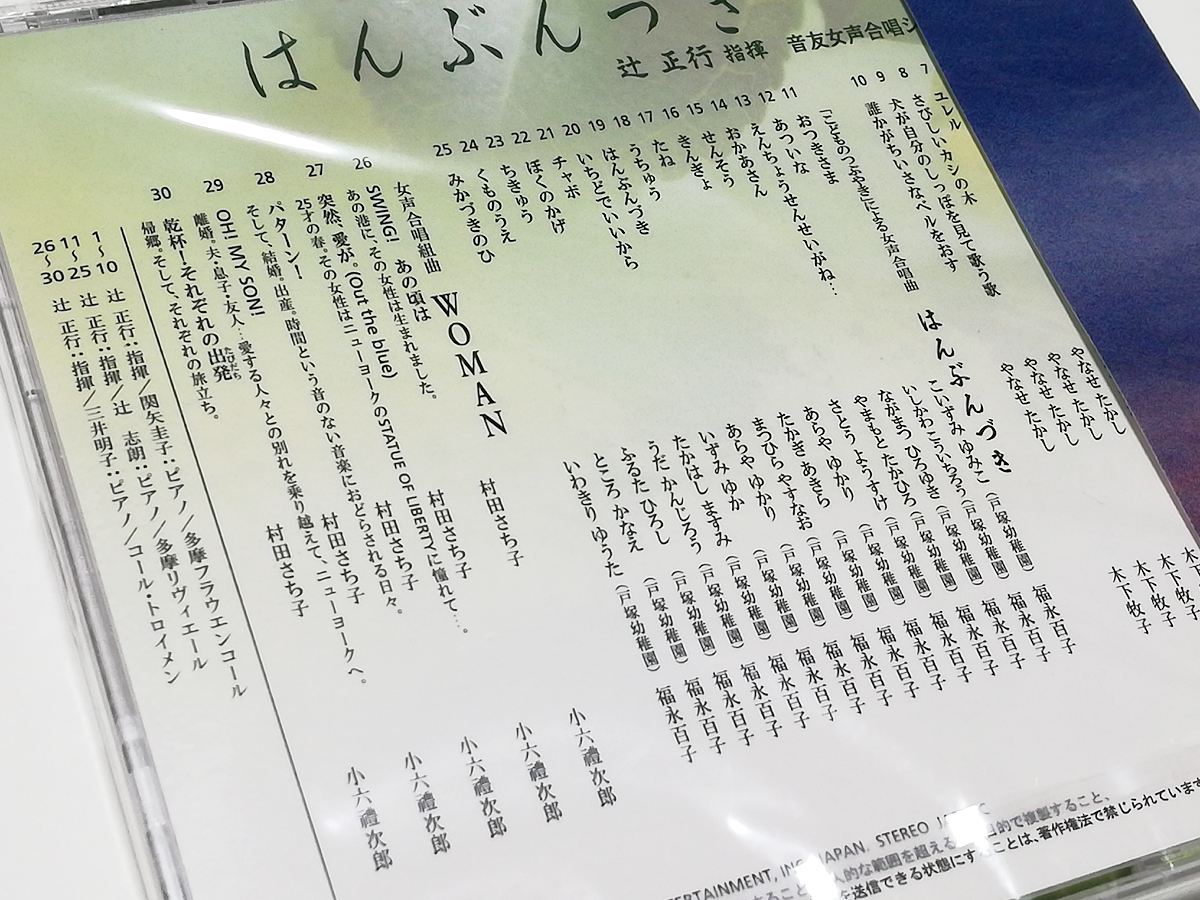 はんぶんづき
辻 正行 指揮 音友女声合唱シ
7 ユレル やなせ たかし 木下牧子
8 さびしいカシの木 やなせ たかし 木下牧子
9 犬が自分のしっぽを見て歌う歌 やなせ たかし 木下牧子
10 誰かがちいさなベルをおす やなせ たかし 木下牧子
「こどものつぶやき」による女声合唱曲 はんぶんづき
11 おつきさま こいずみ ゆみこ (戸塚幼稚園) 福永百子
12 あついな いしかわ こういちろう (戸塚幼稚園) 福永百子
13 えんちょうせんせいがね… ながまつ ひろゆき (戸塚幼稚園) 福永百子
14 おかあさん やまもと たかひろ (戸塚幼稚園) 福永百子
15 せんそう さとう ようすけ (戸塚幼稚園) 福永百子
16 きんぎょ あらや ゆかり (戸塚幼稚園) 福永百子
17 たね たかぎ あきら (戸塚幼稚園) 福永百子
18 うちゅう まつひら やすなお (戸塚幼稚園) 福永百子
19 はんぶんづき あらや ゆかり (戸塚幼稚園) 福永百子
20 いちどでいいから いずみ ゆか (戸塚幼稚園) 福永百子
21 チャボ たかはし ますみ (戸塚幼稚園) 福永百子
22 ぼくのかげ うだ かんじろう (戸塚幼稚園) 福永百子
23 ちきゅう ふるた ひろし (戸塚幼稚園) 福永百子
24 くものうえ ところ かなえ (戸塚幼稚園) 福永百子
25 みかづきのひ いわきり ゆうた (戸塚幼稚園) 福永百子
女声合唱組曲 WOMAN
26 SWING! あの頃は 村田さち子 小六禮次郎
あの港に、その女性は生まれました。
27 突然、愛が。(Out the blue) 村田さち子 小六禮次郎
25才の春。その女性はニューヨークのSTATUE OF LIBERTYに憧れて…。
28 パターーン! 村田さち子 小六禮次郎
そして、結婚。出産。時間という音のない音楽におどらされる日々。
29 OH! MY SON! 村田さち子 小六禮次郎
離婚。夫・息子・友人…愛する人々との別れを乗り越えて、ニューヨークへ。
30 乾杯!それぞれの出発(たびだち) 村田さち子 小六禮次郎
帰郷。そして、それぞれの旅立ち。
1〜10 辻 正行:指揮/関矢圭子:ピアノ/多摩フラウエンコール
11〜25 辻 正行:指揮/辻 志朗:ピアノ/多摩リヴィエール
26〜30 辻 正行:指揮/三井明子:ピアノ/コール・トロイメン
ERTAINMENT, INC. JAPAN. STEREO
人的な範囲を超える 目的で複製すること、
を送信できる状態にすることは、著作権法で禁じられています